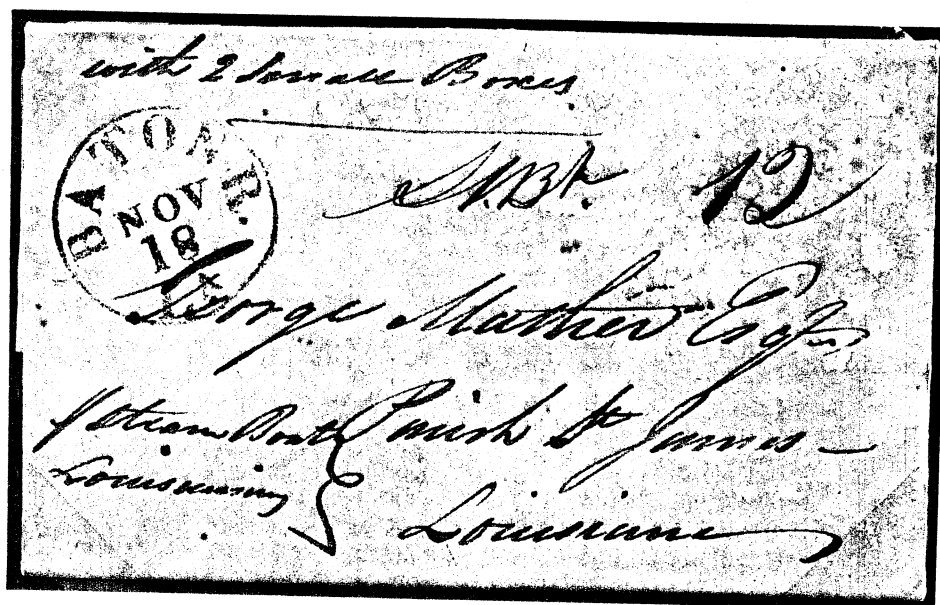 with 2 small Boxes
BATON R.
NOV
18
St. Bt. 12
George Mather Esqr
Steam Boat Parish St James
Louisiana